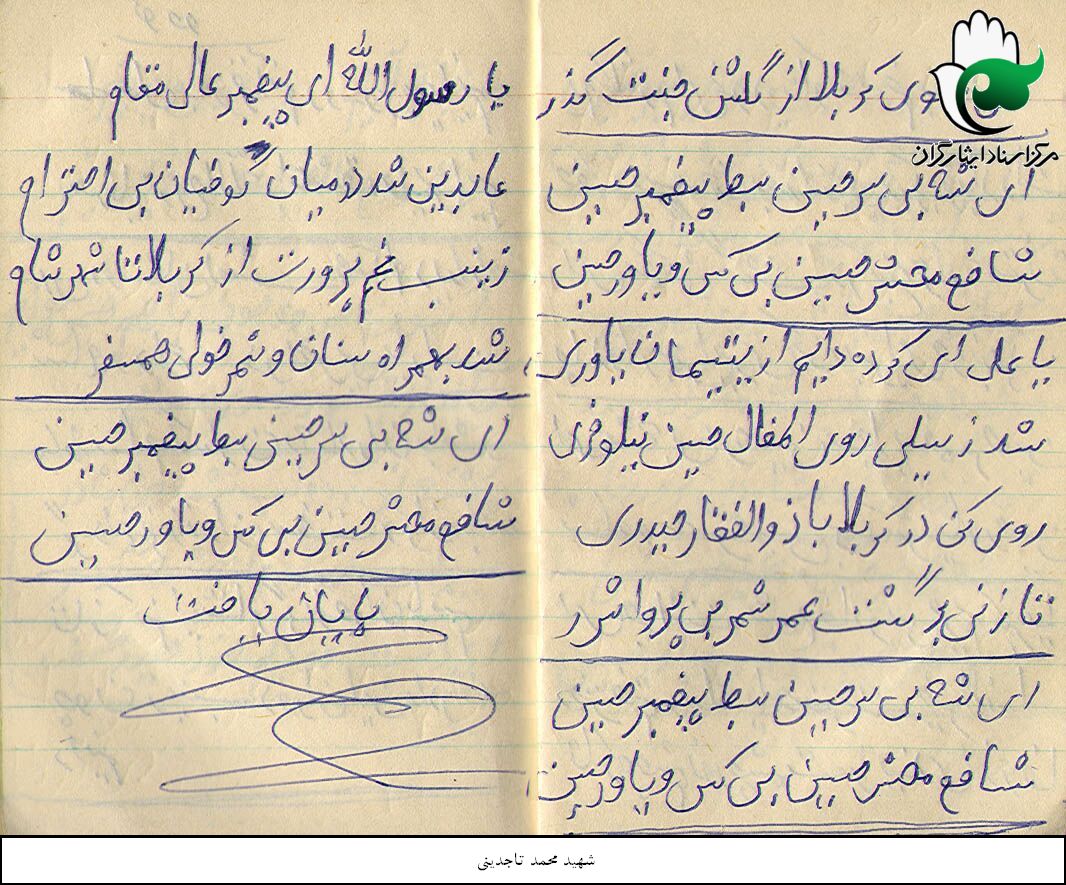 کربلا از گلشن جنت گذر
ای شه بی سر حسین سبط پیغمبر حسین
شافع محشر حسین بی کس و یاور حسین
یا علی ای کرده دایم از یتیمان یاوری
شد ز سیلی روی اطفال حسین نیلوفری
روی کن در کربلا با ذوالفقار حیدری
تا زنی بر گشت عمر شمر بی پروا شرر
ای شه بی سر حسین سبط پیغمبر حسین
شافع محشر حسین بی کس و یاور حسین
یا رسول الله ای پیغمبر عالی مقام
عابدین شد در میان کوفیان بی احترام
زینب غم پرورت از کربلا تا شهر شام
شد بهمراه سنان و شمر خولی همسفر
ای شه بی سر حسین سبط پیغمبر حسین
شافع محشر حسین بی کس و یاور حسین
پایان یافت
مرکز اسناد ایثارگران
شهید محمد تاجدینی